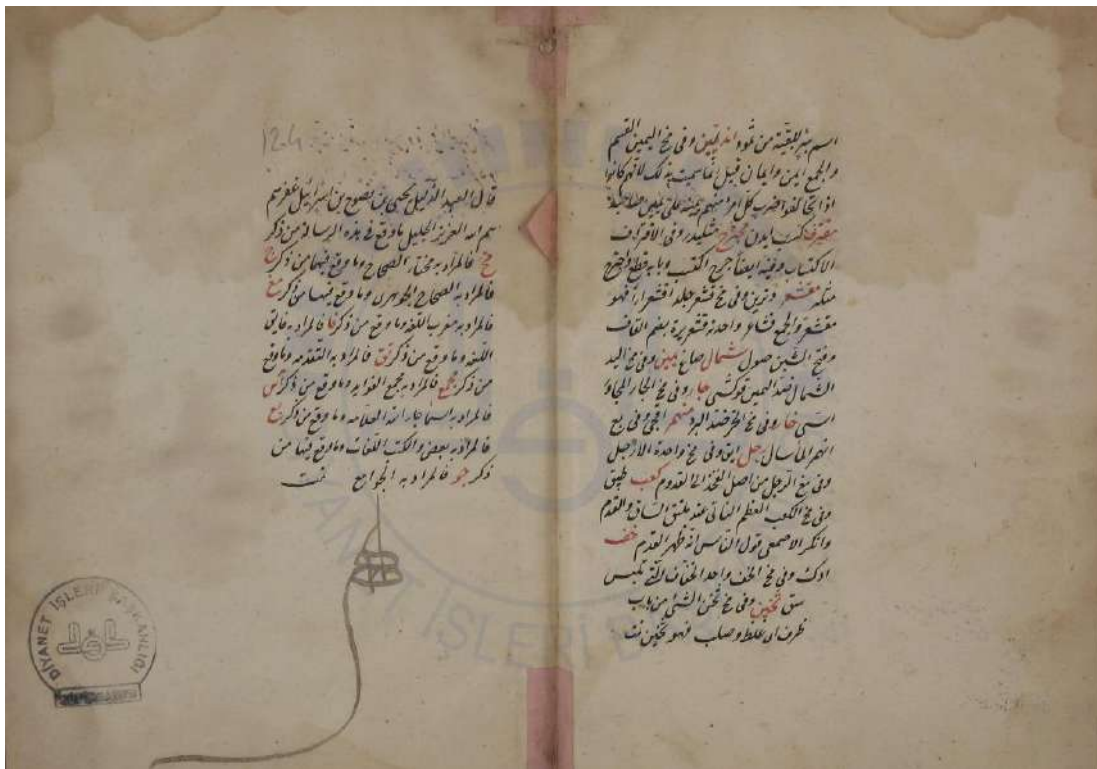 اسم بئر لبقية من ثمود اندیمین وفى مخ اليمين القسم
والجمع ايمن وايمان قيل انما سميت بذلك لانهم كانوا
اذا تحالفوا ضرب كل امرأ منهم يمينه على يمين صاحبه
مقترف كسب ایدن وفى الاقتراف
الاكتساب وفيه ايضا جرح اكتسب وبابه قطع واجترح
مثله مقشعر وفى مخ قشعر جلده اقشعرارا فهو
مقشعر والجمع قشاعر واحدته قشعريرة بضم القاف
وفتح الشين صول شمال صاغ يمين وفى مخ اليد
الشمال ضد اليمين قوكشى جار وفى مخ الجار المجاور
اسى حار وفى مخ الحر ضد البرد منهمر وفى مع
انهمر اى سال رجل ایاق وفى مخ واحدة الارجل
وفى مغ الرجل من اصل الفخذ الى القدم كعب طپق
وفى مخ الكعب العظم الناتئ عند ملتقى الساق والقدم
وانكر الاصمعى قول الناس انه ظهر القدم خف
ادك وفى مخ الخف واحد الخفاف التى تلبس
ثخين وفى مخ ثخن الشئ من باب
ظرف اى غلظ وصلب فهو ثخين تمت
124
قال العبد الذليل يحيى بن نصوح بن اسرائيل غفر لهم
الله العزيز الجليل ما وقع فى هذه الرسالة من ذكر
مخ فالمراد به مختار الصحاح وما وقع فيها من ذكر ج
فالمراد به الصحاح الجوهرى وما وقع فيها من ذكر مغ
فالمراد به مغرب اللغة وما وقع من ذكر فا فالمراد به فايق
اللغة وما وقع من ذكر تق فالمراد به التقدمة وما وقع
من ذكر مجمع فالمراد به مجمع الغرايب وما وقع من ذكر اس
فالمراد به اساس جار الله العلامة وما وقع من ذكر بع
فالمراد به بعض الكتب اللغات وما وقع فيها من
ذكر جو فالمراد به الجوامع تمت
DİYANET İŞLERİ BAŞKANLIĞI